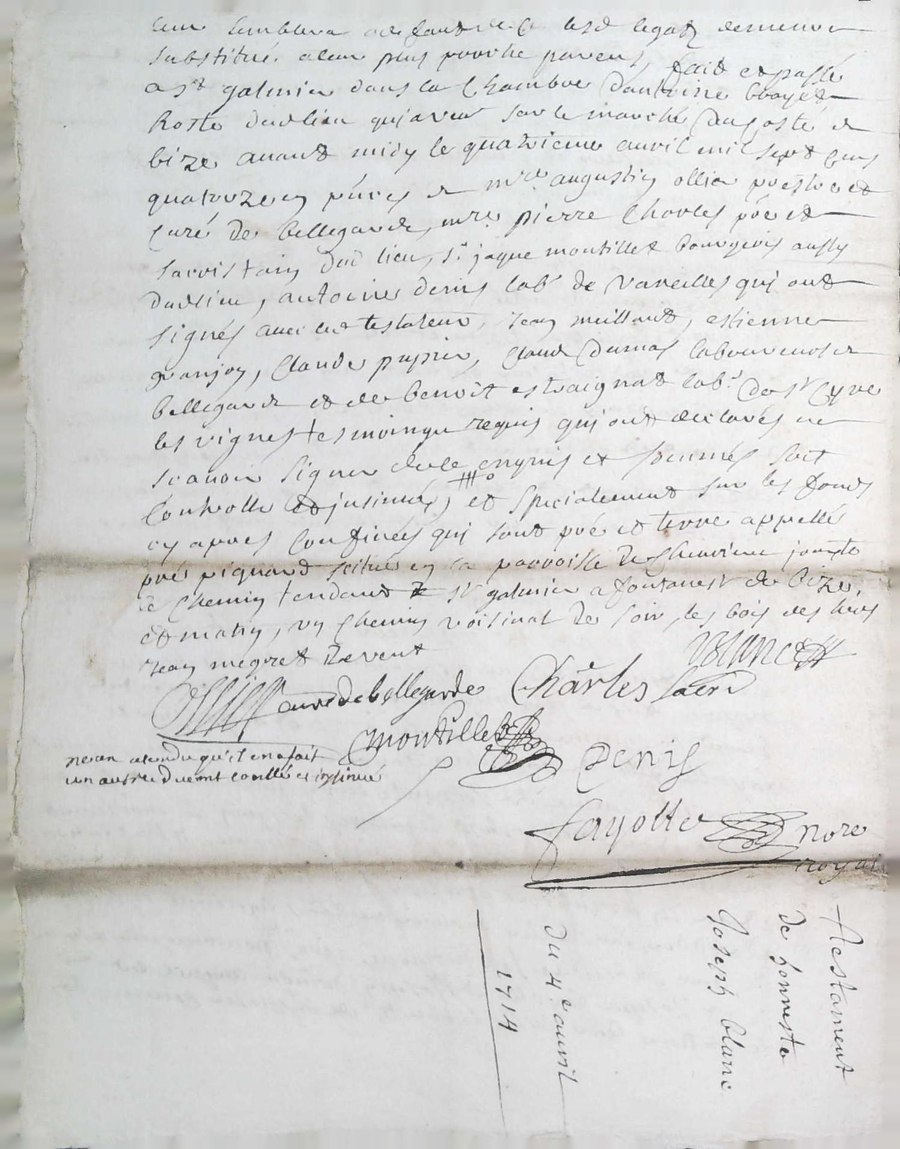 leur semblera a deffaut de ce lesd legatz demeurer
substitué a leur plus proche parens, fait et passé
a st galmier dans la chambre dantoine boyer
hoste dud lieu qui a veue sur le marché du costé de
bize avant midy le quatrieme avril mil sept cens
quatorze en pñces de mre augustin ollier prestre et
curé de bellegarde, mre pierre Charles pbre et
sacristain dud lieu, sr jaque montillet bourgeois aussy
dud lieu, antoine denis labr de vareilles qui ont
signés avec led testateur, jean meillant, estienne
granjon, Claude pupier, Claude Dumas laboureurs de
bellegarde et de benoit estraignat labr de st Cyre
les vignes tesmoings requis qui ont declarés ne
scavoir signer de ce enquis et sommés soit
Controllé et jnsinué, et specialement sur les fonds
cy apres confinés qui sont pré et terre appellé
pré pignard scitué en la parroisse de cheuriere jouxte
le Chemin tendant de st galmier a fontanest de bize,
et matin, un chemin voisinal de soir, les bois des hoirs
jean megret de vent
ollier curé de bellegarde Charles sacri
montillet Denis
nean atendu qu'il en a fait
un autre duemt conllé et insinué
fayolle nore
royal
Testament
de honneste
Joseph blanc
du 4e avril
1714